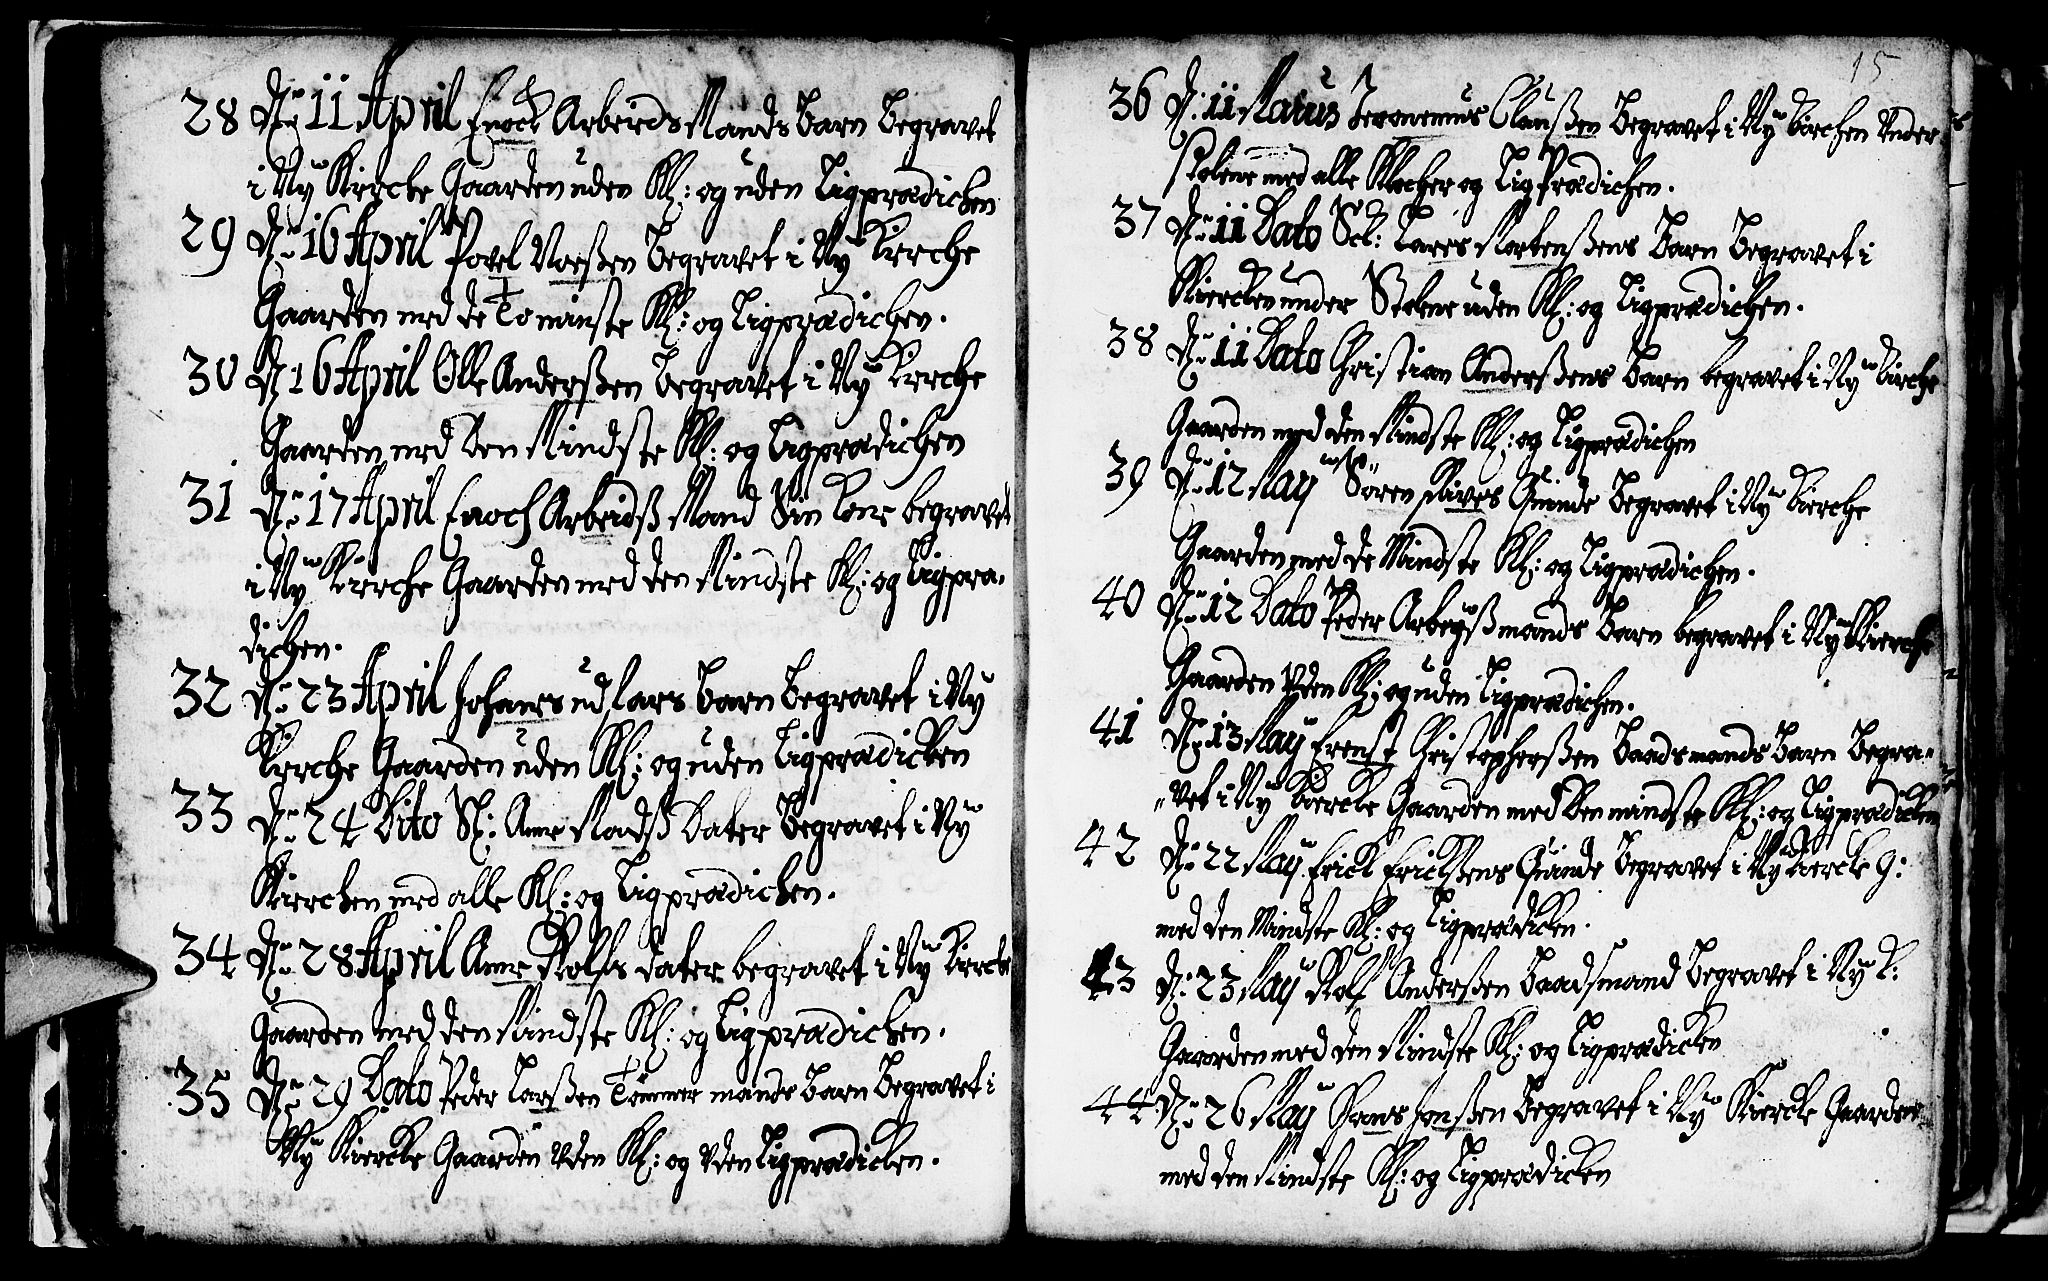 28 Dn: 11 April Enoch Arbeids Mands Barn Begravet
i Ny Kircke Gaarden uden Kl: og uden Ligprædichen
29 Dn: 16 April Povel Noeßen Begravet i Ny Kirche
Gaarden med de To minste Kl: og Ligprædichen.
30 Dn 16 April Olle Anderßen Begravet i Ny Kirche
Gaarden med Den Mindste Kl: og Ligprædichen
31 Dn: 17 April Enoch Arbeidß Mand Sin Kone begravet
i Ny Kirche Gaarden med den Mindste Kl: og Ligpræ-
dichen.
32 Dn: 23 April Johanes ud Lars Barn Begravet i Ny
Kirche Gaarden uden Kl: og uden Ligprædicken
33 Dn: 24 Dito Sl: Anne Madß Dater Begravet i Ny
Kierchen med alle Kl: og Ligprædichen.
34 Dn: 28 April Anne Rolfs dater begravet i Ny Kircke
Gaarden med den Mindste Kl: og Ligprædichen.
35 Dn: 29 Dato Peder Larßen Tømmer mands Barn Begravet i
Ny Kiercke Gaarden uden Kl: og uden Ligprædicken.
15
36 D: 11 Maius Jeronemus Claußen Begravet i Ny Kirchen under
Stolene med alle Klocher og LigPrædichen.
37 Dn: 11 Dato Sel: Lares Mortenßens Barn Begravet i
Kiercken under Stolene uden Kl: og Ligprædichen.
38 Dn: 11 Dato Christian Anderßens Barn begravet i Ny Kirche
Gaarden med den Mindste Kl: og Ligprædichen
39 Dn: 12 May Søren Quinde Begravet i Ny Kierche
Gaarden med de Mindste Kl: og Ligprædichen.
40 Dn: 12 Dato Peder Arbeyßmands Barn begravet i Ny Kierche
Gaarden uden Kl: og uden Ligprædichen.
41 Dn: 13 May Erenst Christopherßen Baadsmands Barn Begra-
vet i Ny Kiercke Gaarden med Den mindste Kl: og Ligprædicken
42 Dn: 22 May Erick Erickßens Quinde Begravet i Ny Kiercke G:
med den Mindste Kl: og Ligprædicken.
43 D: 23 May Rolf Anderßen Baadsmand Begravet i Ny K:
Gaarden med den Mindste Kl: og Ligprædicken
44 Dn: 26 May Hans Jonßen Begravet i Ny Kiercke Gaarden
med den Mindste Kl: og Ligprædicken